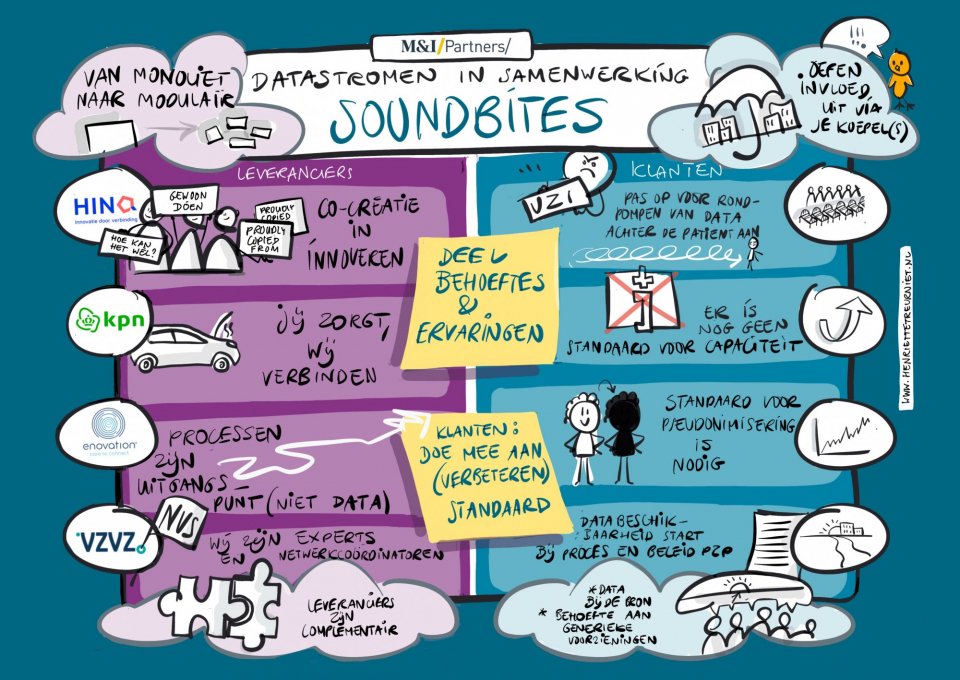 M&I/Partners/
DATASTROMEN IN SAMENWERKING
SOUNDBITES
VAN MONOLIET
NAAR MODULAIR
!!!
OEFEN
INVLOED
UIT VIA
JE KOEPEL(S)
LEVERANCIERS
HINQ
innovatie door verbinding
GEWOON
DOEN
PROUDLY
COPIED
PROUDLY
COPIED
FROM
HOE KAN
HET WEL?
CO-CREATIE
IN
INNOVEREN
kpn
JIJ ZORGT,
WIJ
VERBINDEN
enovation
care to connect
PROCESSEN
ZIJN
UITGANGS-
PUNT (NIET DATA)
VZVZ
NVS
WIJ ZIJN EXPERTS
EN NETWERKCOÖRDINATOREN
LEVERANCIERS
ZIJN
COMPLEMENTAIR
DEEL
BEHOEFTES
&
ERVARINGEN
KLANTEN:
DOE MEE AAN
(VERBETEREN)
STANDAARD
KLANTEN
UZI
PAS OP VOOR ROND-
POMPEN VAN DATA
ACHTER DE PATIENT AAN
ER IS
NOG GEEN
STANDAARD VOOR CAPACITEIT
STANDAARD VOOR
PSEUDONIMISERING
IS
NODIG
DATABESCHIK-
BAARHEID START
BIJ PROCES EN BELEID PZP
* DATA
BIJ DE BRON
* BEHOEFTE AAN
GENERIEKE
VOORZIENINGEN
WWW.HENRIETTETREURNIET.NL